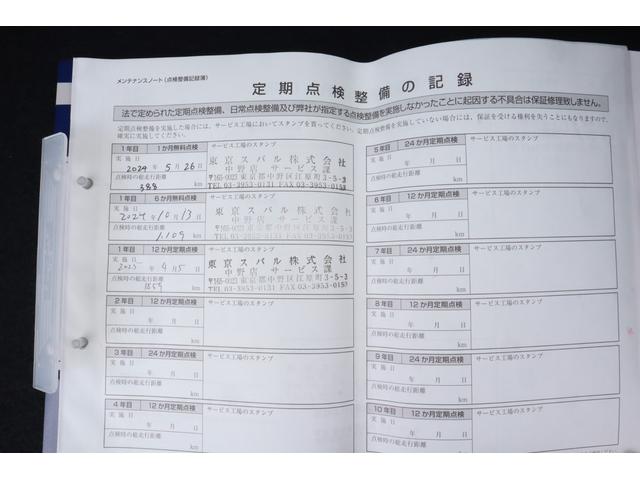 メンテナンスノート（点検整備記録簿）
定期点検整備の記録
法で定められた定期点検整備、日常点検整備及び弊社が指定する点検整備を実施しなかったことに起因する不具合は保証修理致しません。
定期点検整備を実施した場合には、サービス工場においてスタンプを貰ってください。定期点検整備を実施していない場合には、保証を受ける権利を失うことにもなりますので、
確実に実施してください。
1年目 1か月無料点検 サービス工場のスタンプ
実施日
2024年 5月 26日
点検時の総走行距離
388 km
東京スバル株式会社
中野店 サービス課
〒165-0023 東京都中野区江原町3-5-3
TEL 03-3953-0131 FAX 03-3953-0153
1年目 6か月無料点検 サービス工場のスタンプ
実施日
2024年10月13日
点検時の総走行距離
1,109 km
東京スバル株式会社
中野店 サービス課
〒165-0023 東京都中野区江原町3-5-3
TEL 03-3953-0131 FAX 03-3953-0153
1年目 12か月定期点検 サービス工場のスタンプ
実施日
年 4月 5日
点検時の総走行距離
km
東京スバル株式会社
中野店 サービス課
〒165-0023 東京都中野区江原町3-5-3
TEL 03-3953-0131 FAX 03-3953-0153
2年目 12か月定期点検 サービス工場のスタンプ
実施日
年 月 日
点検時の総走行距離
km
3年目 24か月定期点検 サービス工場のスタンプ
実施日
年 月 日
点検時の総走行距離
km
4年目 12か月定期点検 サービス工場のスタンプ
実施日
年 月 日
点検時の総走行距離
km
5年目 24か月定期点検 サービス工場のスタンプ
実施日
年 月 日
点検時の総走行距離
km
6年目 12か月定期点検 サービス工場のスタンプ
実施日
年 月 日
点検時の総走行距離
km
7年目 24か月定期点検 サービス工場のスタンプ
実施日
年 月 日
点検時の総走行距離
km
8年目 12か月定期点検 サービス工場のスタンプ
実施日
年 月 日
点検時の総走行距離
km
9年目 24か月定期点検 サービス工場のスタンプ
実施日
年 月 日
点検時の総走行距離
km
10年目 12か月定期点検 サービス工場のスタンプ
実施日
年 月 日
点検時の総走行距離
km